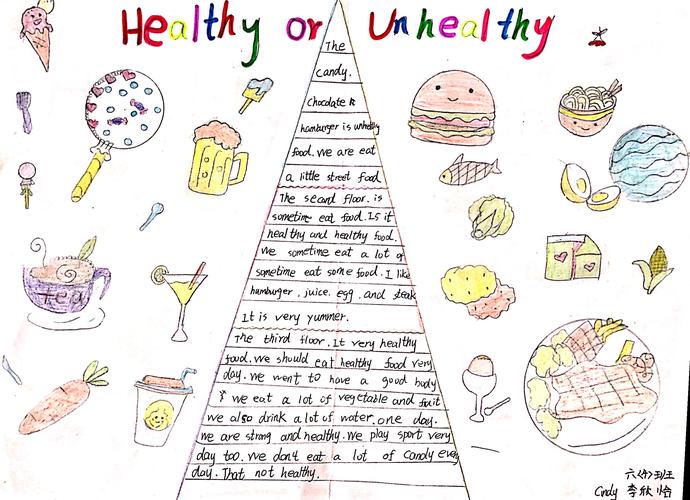 Healthy or Unhealthy
The
candy.
chocolate &
hamburger is unhealthy
food. we are eat
a little street food
The second floor. is
sometime eat food. Is it
healthy and healthy food.
We sometime eat a lot of
sometime eat some food. I like
hamburger. juice. egg. and steak
It is very yummer.
The third floor. It very healthy
food. we should eat healthy food very
day. we went to have a good body
& we eat a lot of vegetable and fruit
we also drink a lot of water. one day.
we are strang and healthy. We play sport very
day too. We don't eat a lot of candy every
day. That not healthy.
tea
六(4)班
Cindy 李欣怡